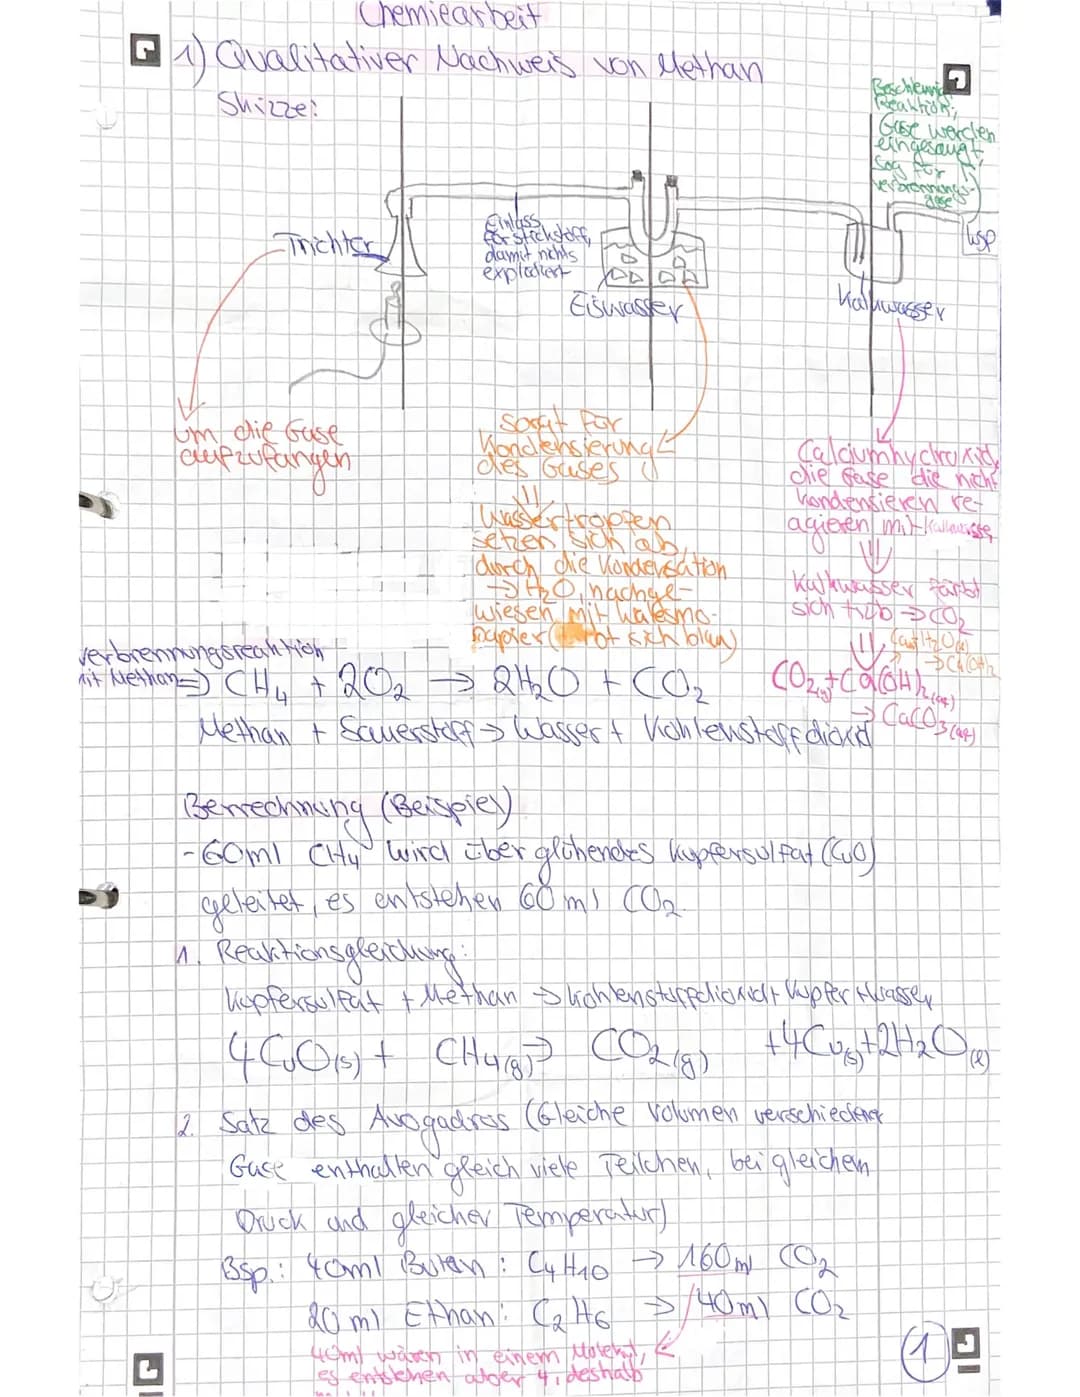 Chemiearbeit
1) Qualitativer Nachweis von Methan
Skizze:
Beschleunigt
Reaktion;
Gase werden
eingesaugt,
Sog für
verbrennungs-
gase
Trichter
Einlass
für Stickstoff,
damit nichts
explodiert
Eiswasser
Kalkwasser
WSP
um die Gase
aufzufangen
sorgt für
Kondensierung
des Gases
Wassertropfen
setzen sich ab,
durch die Kondensation
→ H2O, nachge-
wiesen mit Watesmo-
papier (färbt sich blau)
Calciumhydroxid,
die Gase die nicht
kondensieren re-
agieren mit Kalkwasser
Kalkwasser färbt
sich trüb → CO2
CO2(g) + Ca(OH)2(aq)
→ CaCO3(aq)
verbrennungsreaktion
mit Methan => CH4 + 2O2 → 2H2O + CO2
Methan + Sauerstoff → Wasser + Kohlenstoffdioxid
Berrechnung (Beispiel)
- 60ml CH4 wird über glühendes Kupfersulfat (CuO)
geleitet, es entstehen 60 ml CO2.
1. Reaktionsgleichung:
Kupfersulfat + Methan → Kohlenstoffdioxid + Kupfer + Wasser
4CuO(s) + CH4(g) → CO2(g) + 4Cu(s) + 2H2O(l)
2. Satz des Avogadros (Gleiche Volumen verschiedener
Gase enthalten gleich viele Teilchen, bei gleichem
Druck und gleicher Temperatur)
Bsp.: 40ml Butan: C4H10 → 160ml CO2
20 ml Ethan: C2H6 → 40ml CO2
40ml wären in einem Molekül,
es entstehen aber 4, deshalb
1